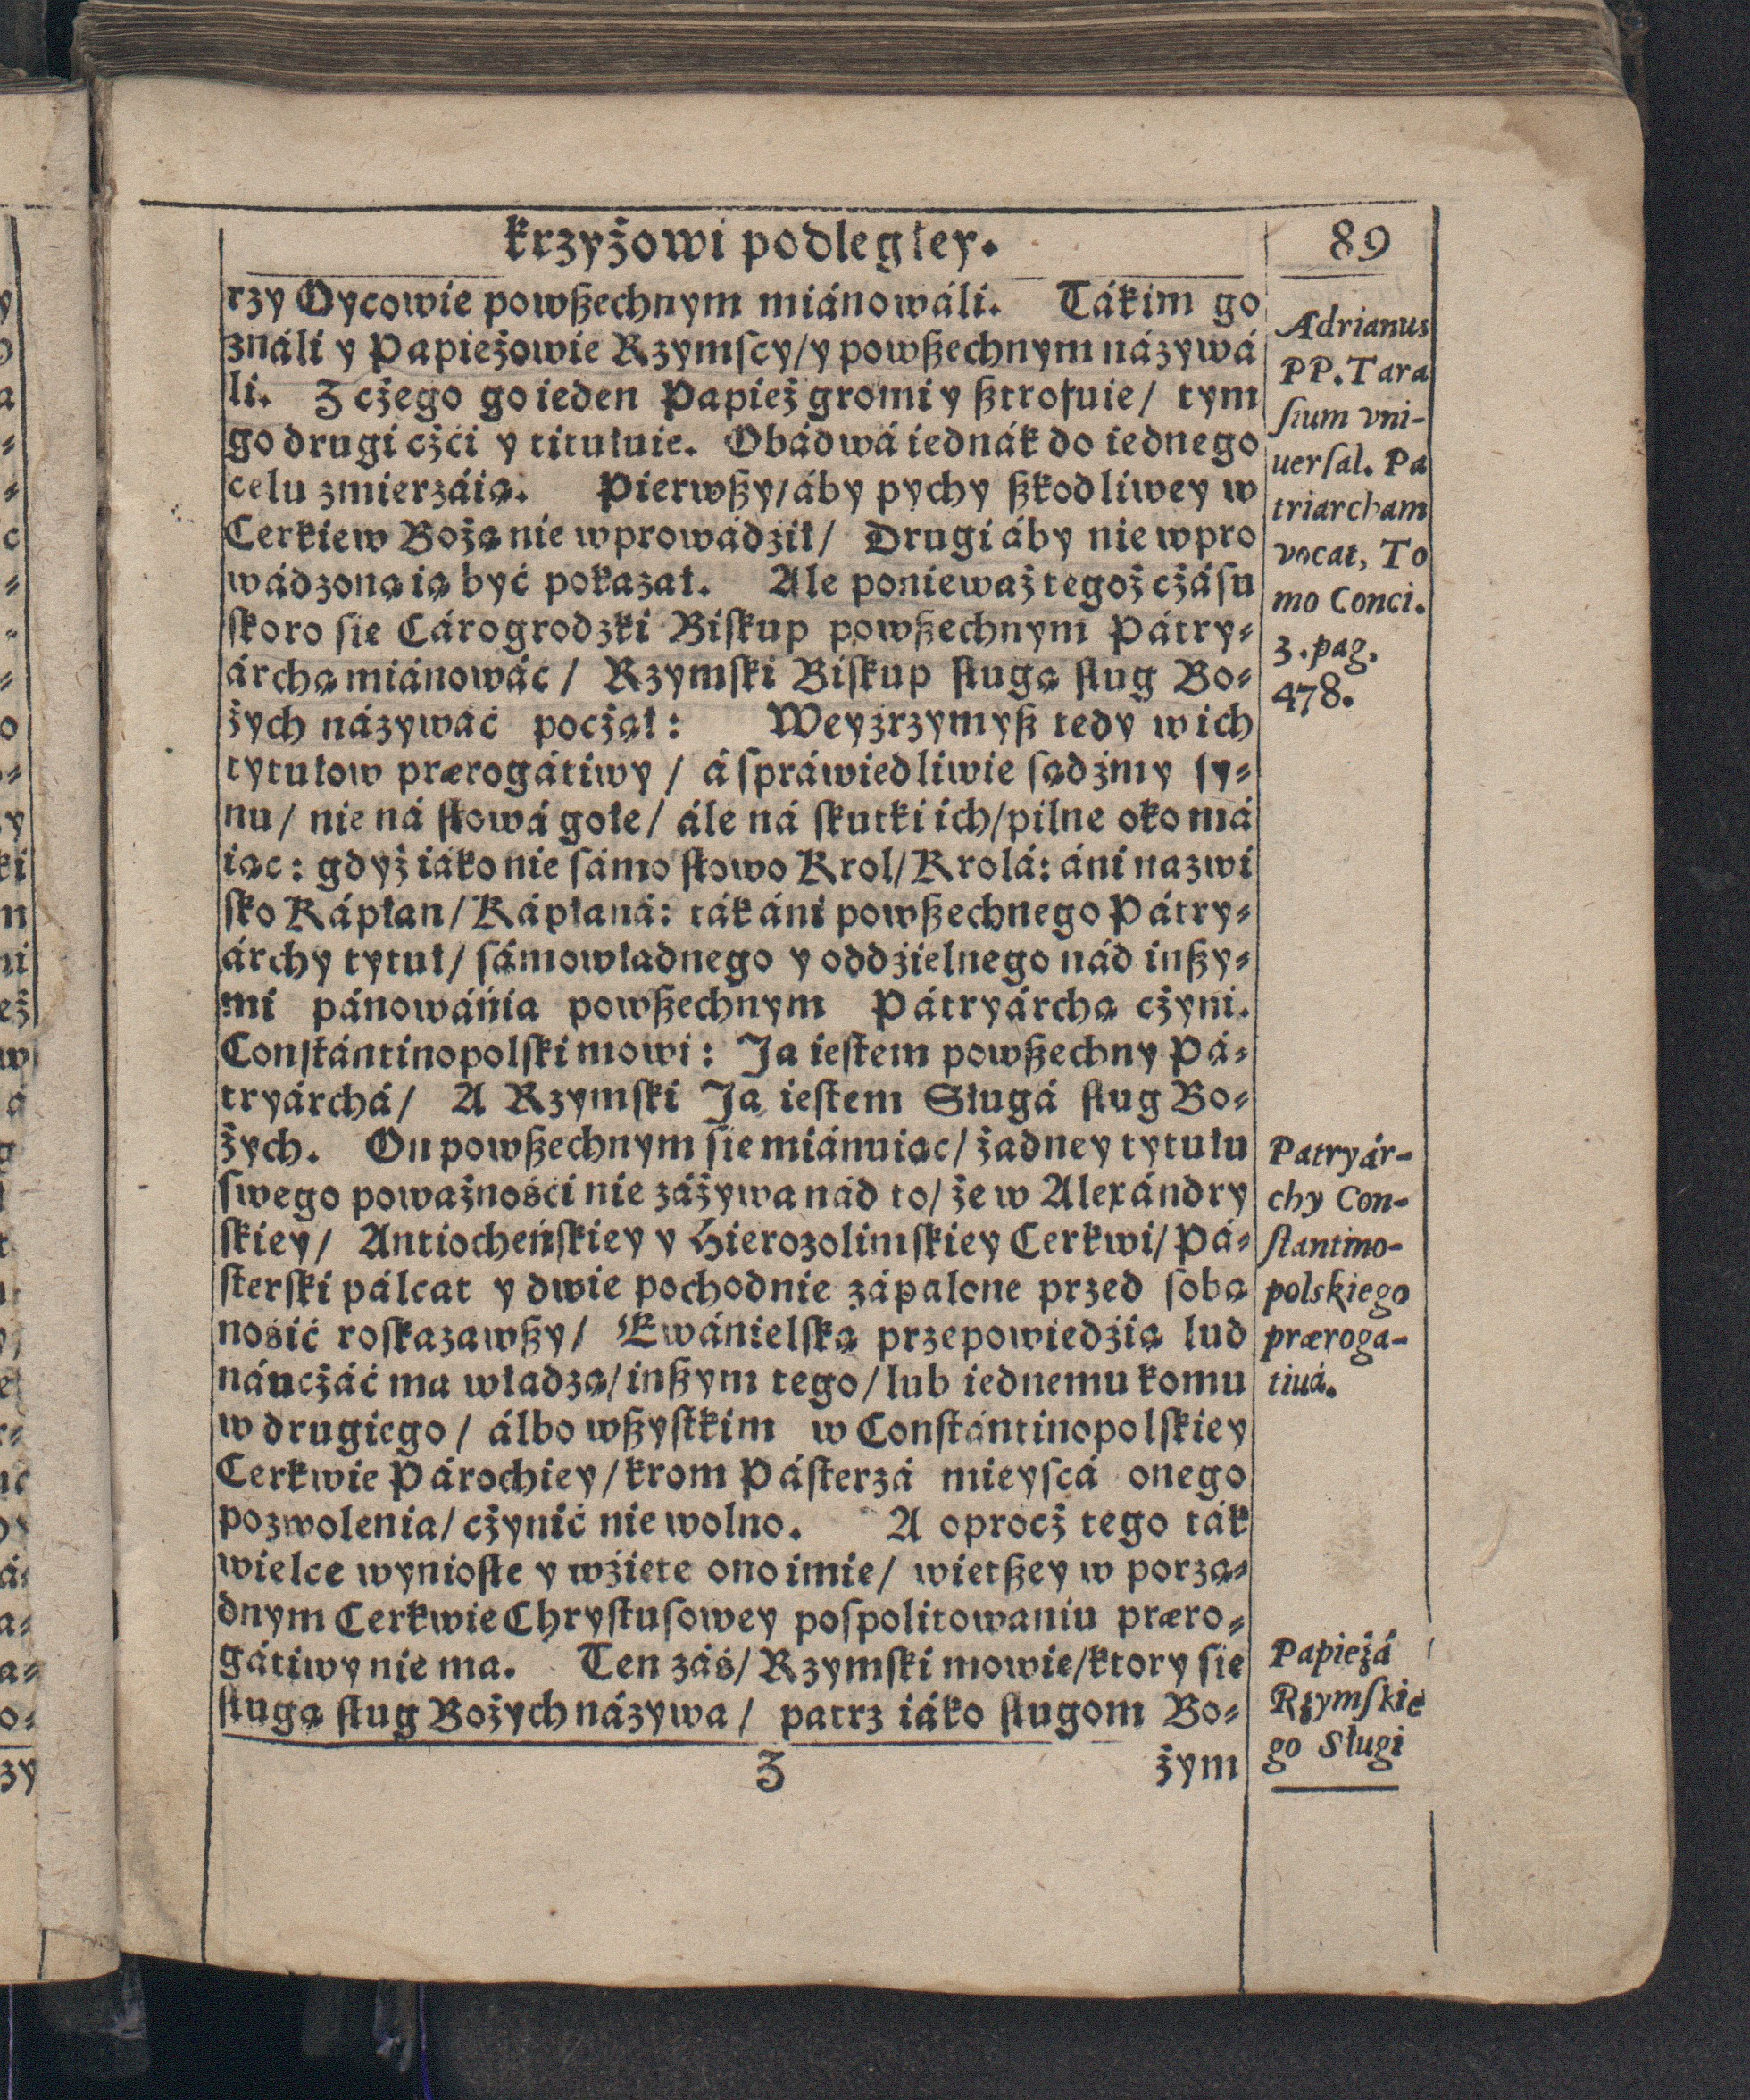 krzyżowi podległey.
89
rzy Oycowie powßechnym miánowáli. Tákim go
ználi y Papieżowie Rzymſcy/ y powßechnym názywá
li. Z cżego go ieden Papież gromi y ßtrofuie/ tym
go drugi cżći y titułuie. Obádwá iednák do iednego
celu zmierzáią. Pierwßy/ áby pychy ßkodliwey w
Cerkiew Bożą nie wprowádźił/ Drugi áby nie wpro
wádzoną ią być pokazał. Ale ponieważ tegoż cżáſu
ſkoro ſie Cárogrodzki Biſkup powßechnym Pátry⸗
árchą miánowáć/ Rzymſki Biſkup ſługą ſług Bo⸗
żych názywáć pocżął: Weyźrzymyß tedy w ich
tytułow prærogátiwy/ á ſpráwiedliwie ſądźmy ſy⸗
nu/ nie ná ſłowá gołe/ ále ná ſkutki ich/ pilne oko má
iąc: gdyż iáko nie ſámo ſłowo Krol/ Krolá: áni nazwi
ſko Kápłan/ Kápłaná: ták áni powßechnego Pátry⸗
árchy tytuł/ ſámowładnego y oddźielnego nád inßy⸗
mi pánowánia powßechnym Pátryárchą cżyni.
Conſtántinopolſki mowi: Ja ieſtem powßechny Pá⸗
tryárchá/ A Rzymſki Ja ieſtem Sługá ſług Bo⸗
żych. On powßechnym ſie miánuiąc/ żadney tytułu
ſwego poważnośći nie záżywa nád to/ że w Alexándry
ſkiey/ Antiocheńſkiey y Hierozolimſkiey Cerkwi/ Pá⸗
ſterſki pálcat y dwie pochodnie zápalone przed ſobą
nośić roſkazawßy/ Ewánielſką przepowiedźią lud
náucżáć ma władzą/ inßym tego/ lub iednemu komu
w drugiego/ álbo wßyſtkim w Conſtántinopolſkiey
Cerkwie Párochiey/ krom Páſterzá mieyſcá onego
pozwolenia/ cżynić nie wolno. A oprocż tego ták
wielce wynioſłe y wźiete ono imie/ wietßey w porzą⸗
dnym Cerkwie Chryſtuſowey poſpolitowaniu præro⸗
gátiwy nie ma. Ten záś/ Rzymſki mowie/ ktory ſie
ſługą ſług Bożych názywa/ patrz iáko ſługom Bo⸗
Z
żym
Adrianus
PP. Tara
ſium vni-
uerſal. Pa
triarcham
vocat, To
mo Conci.
3. pag.
478.
Patryár-
chy Con-
ſtantino-
polskiego
præroga-
tiuá.
Papieżá
Rzymſkie
go Sługi